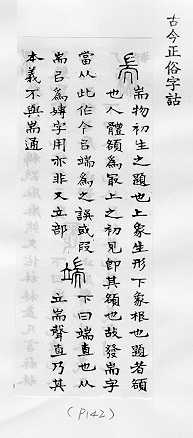 古今正俗字詁
耑
耑物初生之題也上象生形下象根也題者頟
也人體頟為最上之初見即其頟也故發耑字
當从此作今㠯端為之誤或叚
耑㠯為專字用亦非又立部
端
下曰端直也从
立耑聲直乃其
本義不與耑通
(P142)